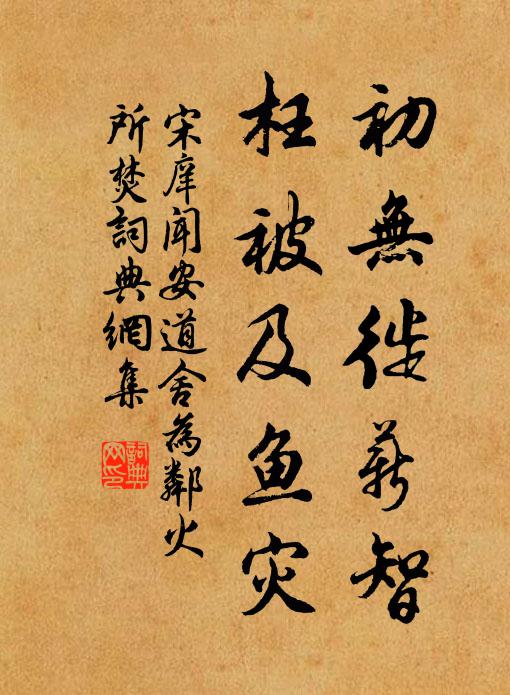 初無徙薪智
枉被及鱼灾
宋庠闻安道舍為鄰火
所焚詞典網集
詞典網印